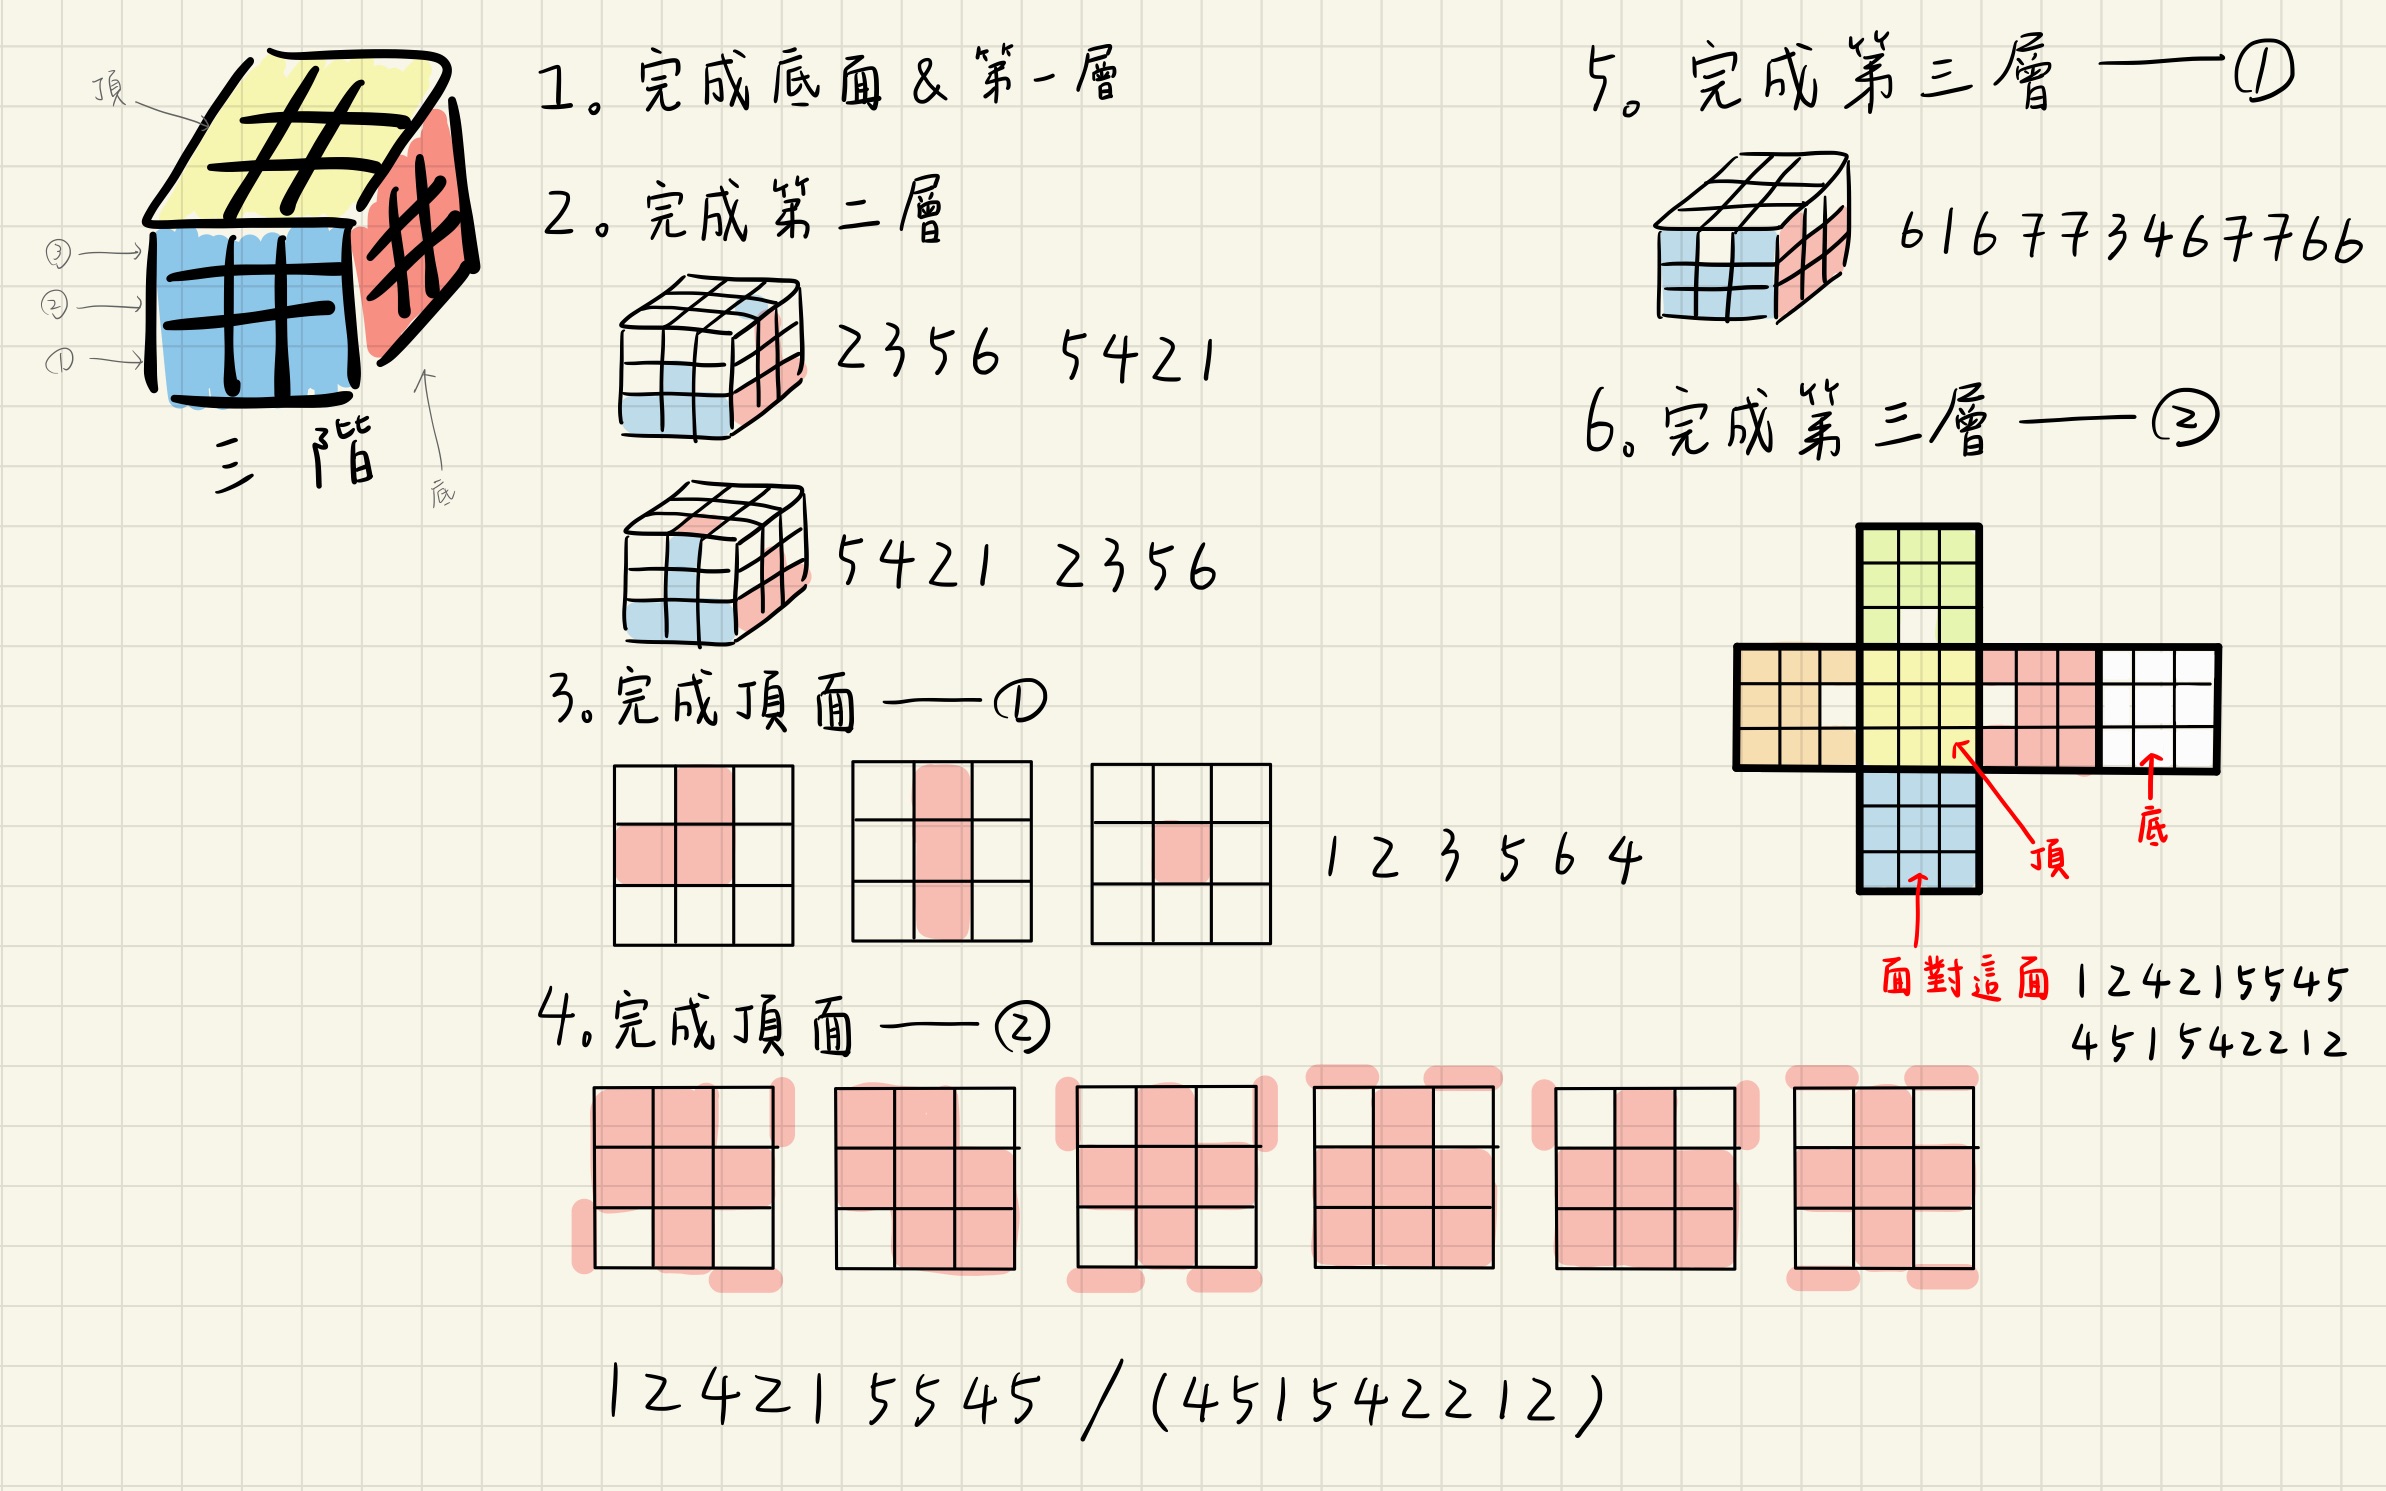 頂
③
②
①
三階
底
1. 完成底面&第一層
2. 完成第二層
2356 5421
5421 2356
3. 完成頂面——①
1 2 3 5 6 4
4. 完成頂面——②
124215545/(451542212)
5. 完成第三層——①
616773467766
6. 完成第三層——②
底
頂
面對這面
124215545
451542212